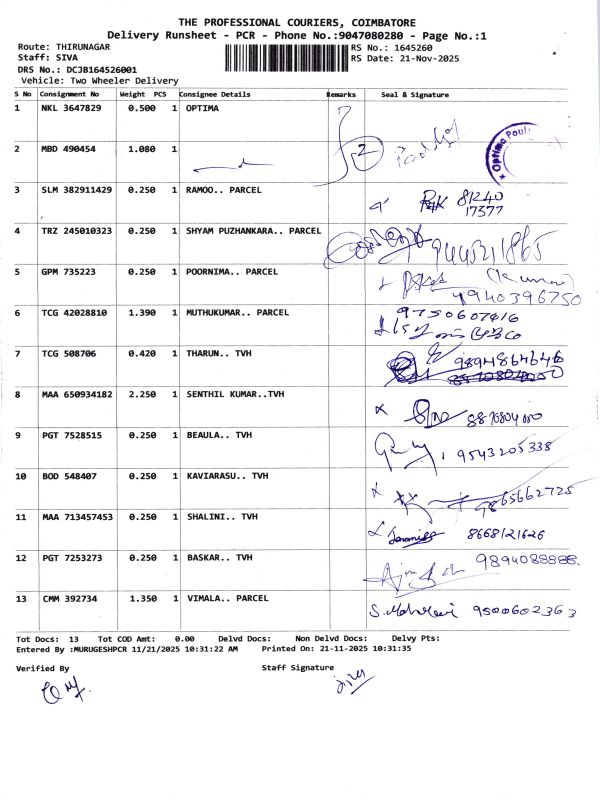 THE PROFESSIONAL COURIERS, COIMBATORE
Delivery Runsheet - PCR - Phone No.:9047080280 - Page No.:1
Route: THIRUNAGAR RS No.: 1645260
Staff: SIVA RS Date: 21-Nov-2025
DRS No.: DCJB164526001
Vehicle: Two Wheeler Delivery
S No Consignment No Weight PCS Consignee Details Remarks Seal & Signature
1 NKL 3647829 0.500 1 OPTIMA
2 MBD 490454 1.080 1 2
Optima Poul
3 SLM 382911429 0.250 1 RAMOO.. PARCEL 81240
17377
4 TRZ 245010323 0.250 1 SHYAM PUZHANKARA.. PARCEL 9445211865
5 GPM 735223 0.250 1 POORNIMA.. PARCEL (Kumar)
9940396750
6 TCG 42028810 1.390 1 MUTHUKUMAR.. PARCEL 9750607416
7 TCG 508706 0.420 1 THARUN.. TVH 9894864646
8 MAA 650934182 2.250 1 SENTHIL KUMAR..TVH
9 PGT 7528515 0.250 1 BEAULA.. TVH 9543205338
10 BOD 548407 0.250 1 KAVIARASU.. TVH 9865662725
11 MAA 713457453 0.250 1 SHALINI.. TVH 8668121626
12 PGT 7253273 0.250 1 BASKAR.. TVH 9894088888
13 CMM 392734 1.350 1 VIMALA.. PARCEL 9500602363
Tot Docs: 13 Tot COD Amt: 0.00 Delvd Docs: Non Delvd Docs: Delvy Pts:
Entered By :MURUGESHPCR 11/21/2025 10:31:22 AM Printed On: 21-11-2025 10:31:35
Verified By Staff Signature